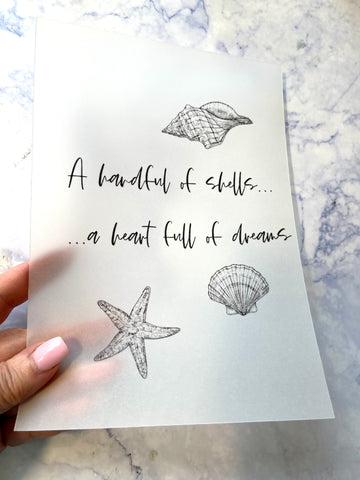 A handful of shells...
...a heart full of dreams